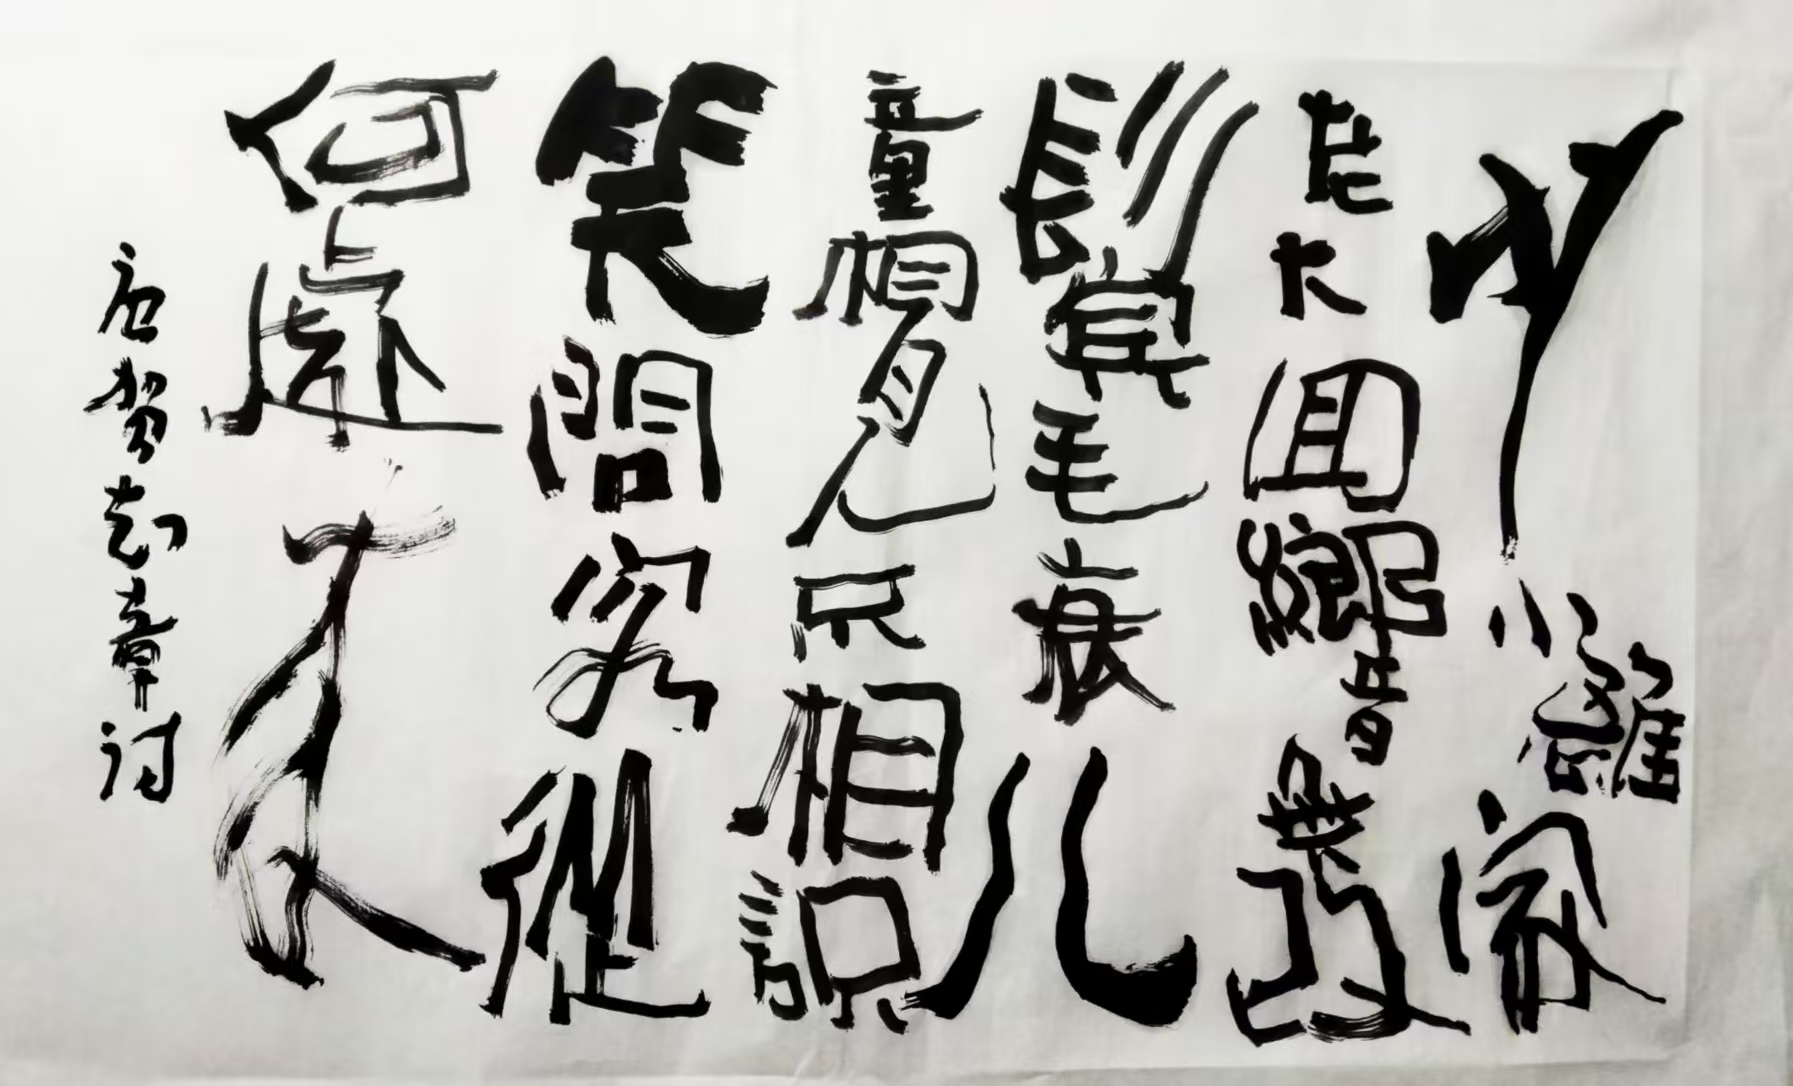 少小離家
老大回鄉音無改
鬢毛衰儿
童相見不相識
笑問客從
何處来
唐贺知章诗